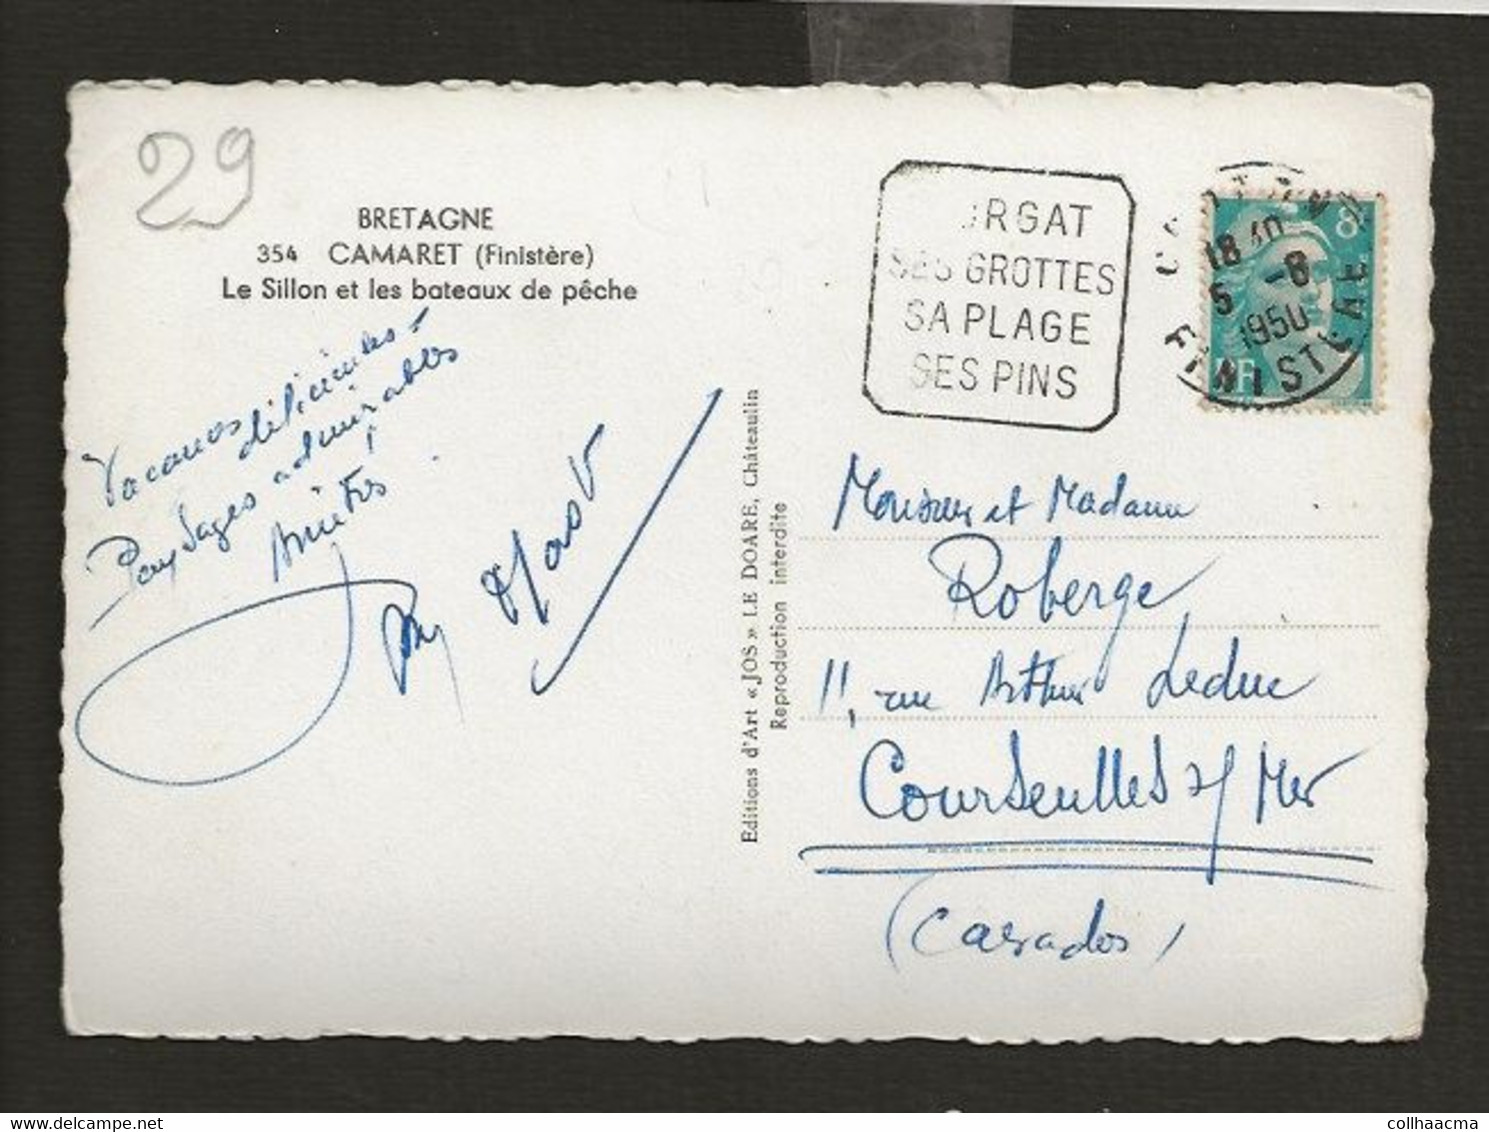 29
BRETAGNE
354 CAMARET (Finistère)
Le Sillon et les bateaux de pêche
Vacances délicieuses -
Paysages admirables
Amitiés
Editions d'Art « JOS » LE DOARE, Châteaulin
Reproduction interdite
RGAT
SES GROTTES
SA PLAGE
SES PINS
18
5 -8
1950
FINISTÈRE
8
RF
Monsieur et Madame
Roberge
11, rue Arthur Leduc
Courseulles s/ Mer
(Calvados)
collhaacma